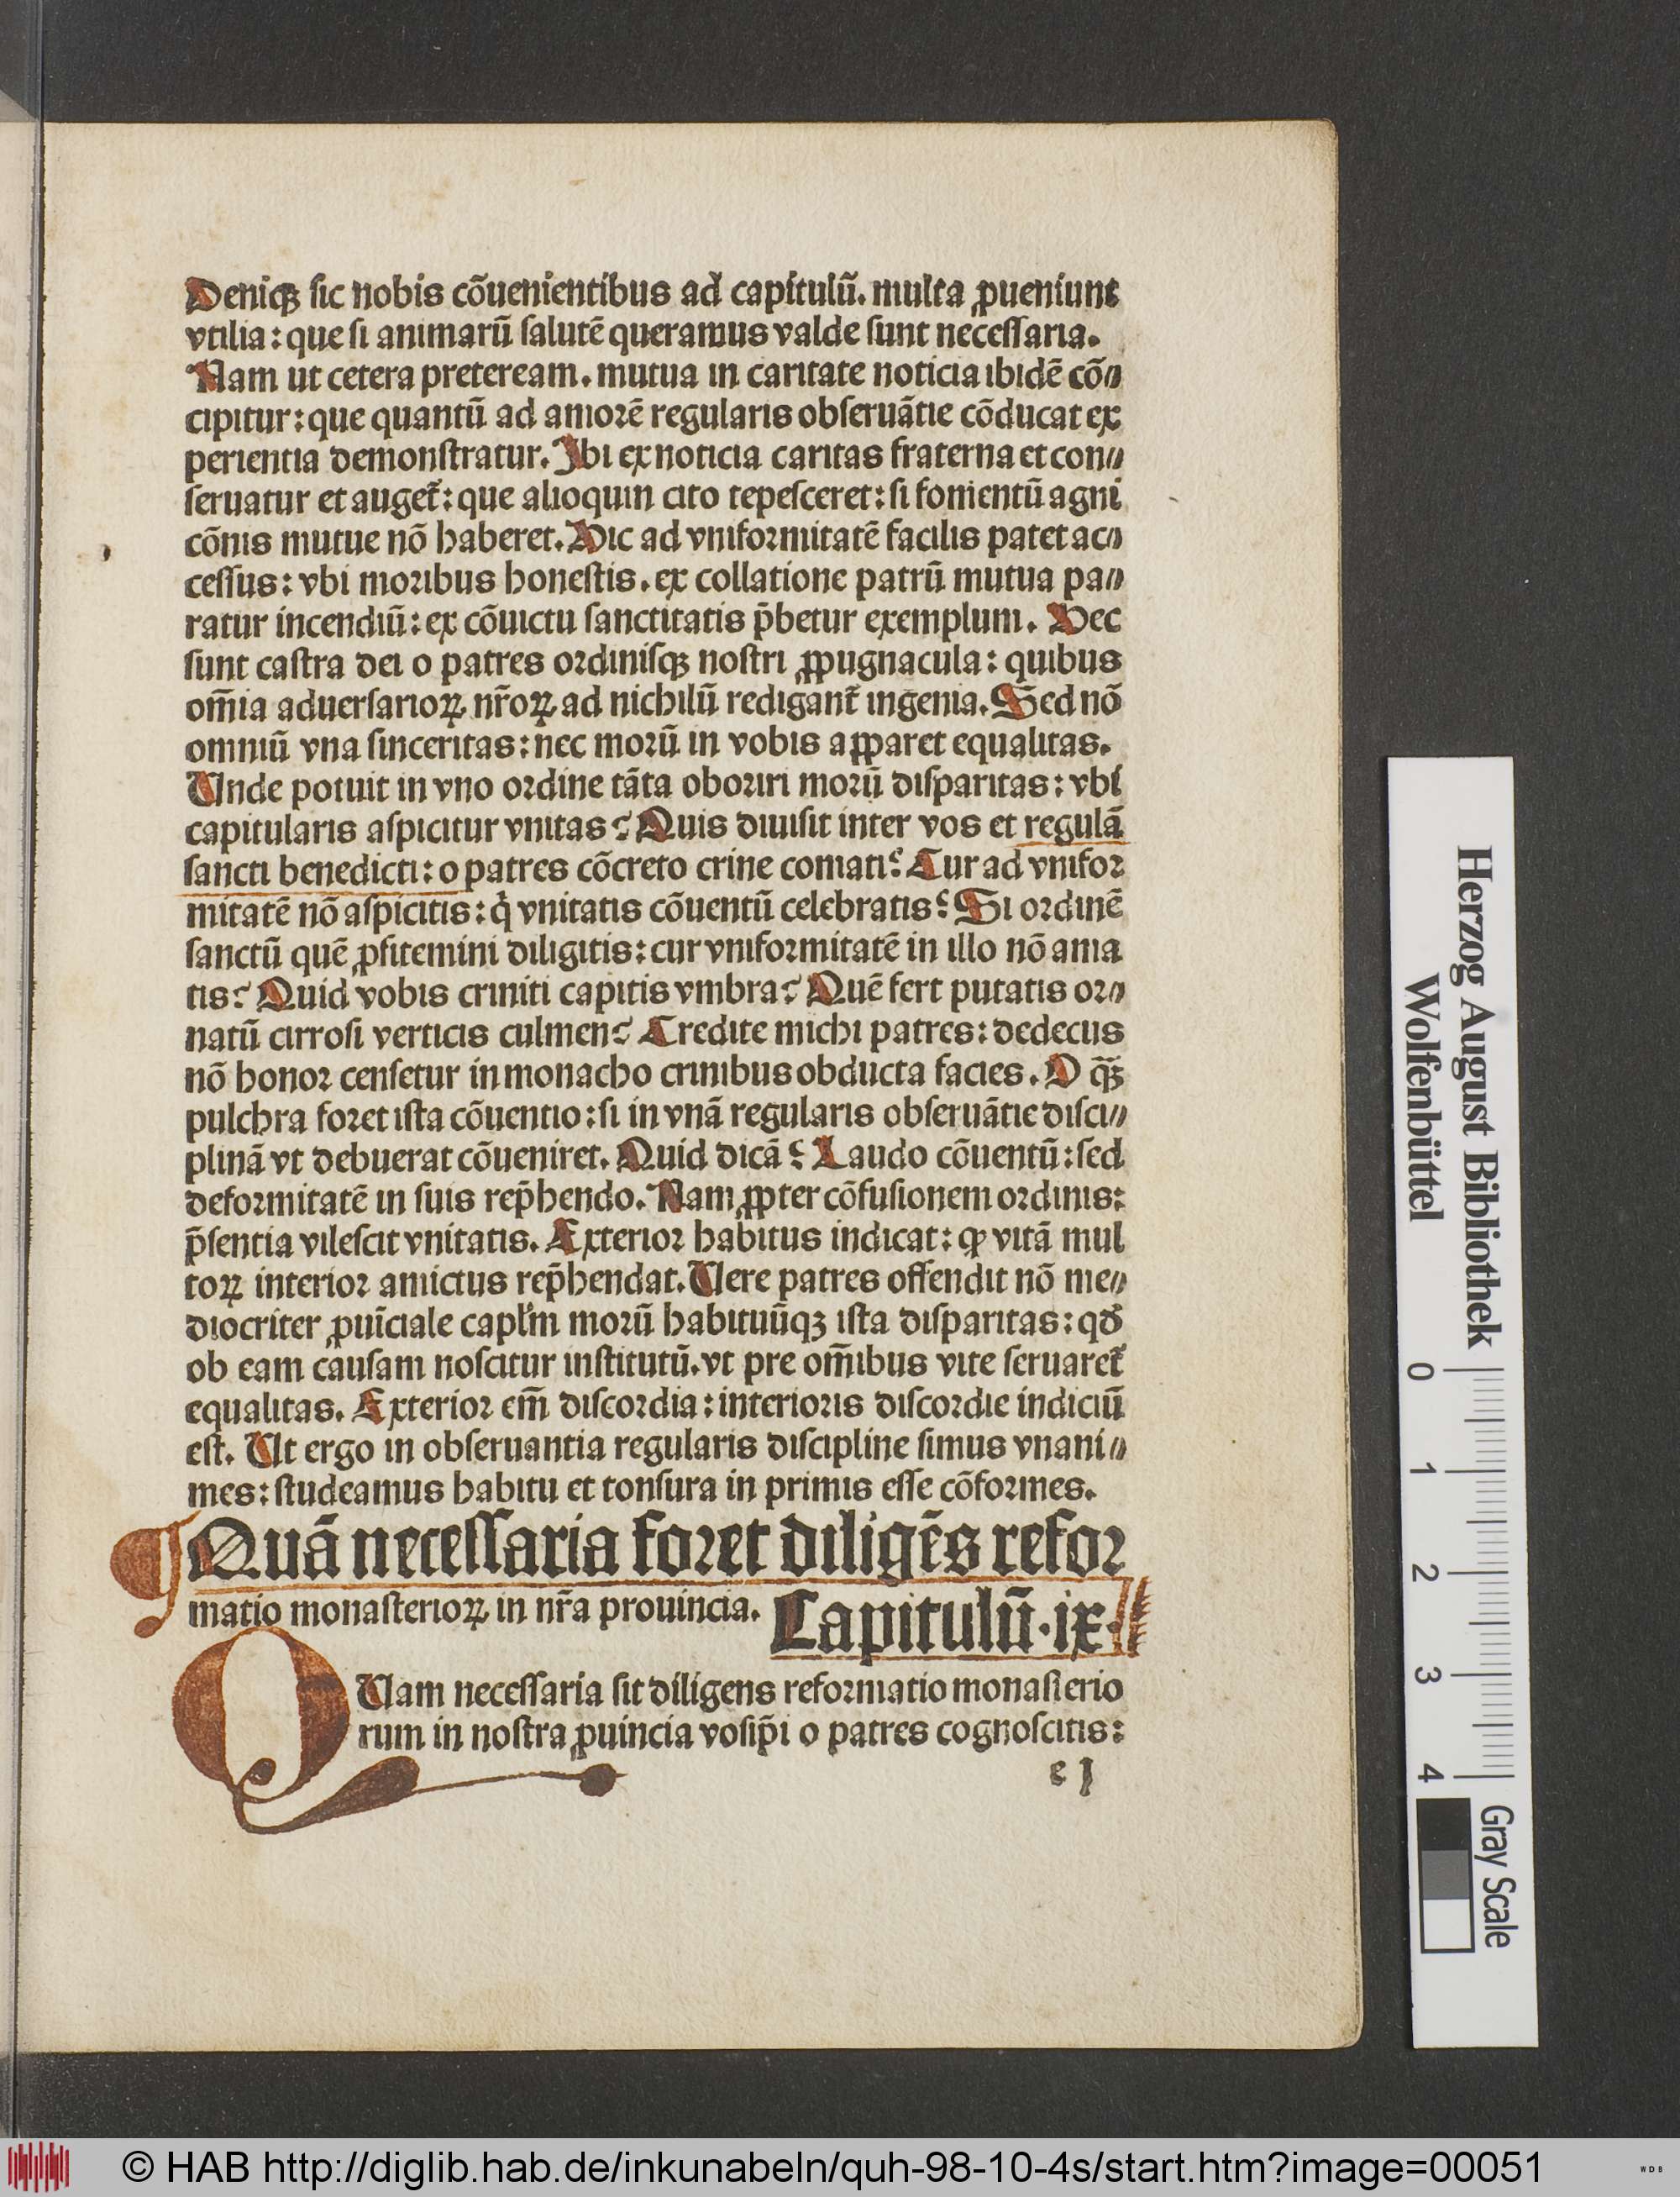 Deniqꝫ ſic nobis cõuenientibus ad capitulũ. multa ꝓueniunt
vtilia: que ſi animarũ ſalutẽ queramus valde ſunt neceſſaria.
Nam ut cetera preteream. mutua in caritate noticia ibidẽ cõ⸗
cipitur: que quantũ ad amorẽ regularis obſeruãtie cõducat ex
perientia demonſtratur. Ibi ex noticia caritas fraterna et con⸗
ſeruatur et auget᷑: que alioquin cito tepeſceret: ſi fomentũ agni
cõnis mutue nõ haberet. Hic ad vniformitatẽ facilis patet ac⸗
ceſſus: vbi moribus honeſtis. ex collatione patrũ mutua pa⸗
ratur incendiũ: ex cõuictu ſanctitatis p̄betur exemplum. Hec
ſunt caſtra dei o patres ordiniſqꝫ noſtri ꝓpugnacula: quibus
om̄ia aduerſarioꝝ nr̄oꝝ ad nichilũ redigant᷑ ingenia. Sed nõ
omniũ vna ſinceritas: nec morũ in vobis apparet equalitas.
Unde potuit in vno ordine tãta oboriri morũ diſparitas: vbi
capitularis aſpicitur vnitas? Quis diuiſit inter vos et regulã
ſancti benedicti: o patres cõcreto crine comati? Cur ad vnifor
mitatẽ nõ aſpicitis: q̇ vnitatis cõuentũ celebratis? Si ordinẽ
ſanctũ quẽ ꝓfitemini diligitis: cur vniformitatẽ in illo nõ ama
tis? Quid vobis criniti capitis vmbra? Quẽ fert putatis or⸗
natũ cirroſi verticis culmen? Credite michi patres: dedecus
nõ honor cenſetur in monacho crinibus obducta facies. O q̃ꝫ
pulchra foret iſta cõuentio: ſi in vnã regularis obſeruãtie diſci⸗
plinã vt debuerat cõueniret. Quid dicã? Laudo cõuentũ: ſed
deformitatẽ in ſuis rep̄hendo. Nam ꝓpter cõfuſionem ordinis:
p̄ſentia vileſcit vnitatis. Exterior habitus indicat: ꝙ vitã mul
toꝝ interior amictus rep̄hendat. Uere patres offendit nõ me⸗
diocriter ꝓuĩciale capl'm morũ habituũqꝫ iſta diſparitas: qđ
ob eam cauſam noſcitur inſtitutũ. vt pre om̄ibus vite ſeruaret᷑
equalitas. Exterior em̄ diſcordia: interioris diſcordie indiciũ
eſt. Ut ergo in obſeruantia regularis diſcipline ſimus vnani⸗
mes: ſtudeamus habitu et tonſura in primis eſſe cõformes.
Quã neceſſaria foret diligẽs refor
matio monaſterioꝝ in nr̄a prouincia. Capitulũ.ix.
QUam neceſſaria ſit diligens reformatio monaſterio
rum in noſtra ꝓuincia vosip̄i o patres cognoſcitis:
e j
Herzog August Bibliothek
Wolfenbüttel
0 1 2 3 4
Gray Scale
© HAB http://diglib.hab.de/inkunabeln/quh-98-10-4s/start.htm?image=00051
WDB